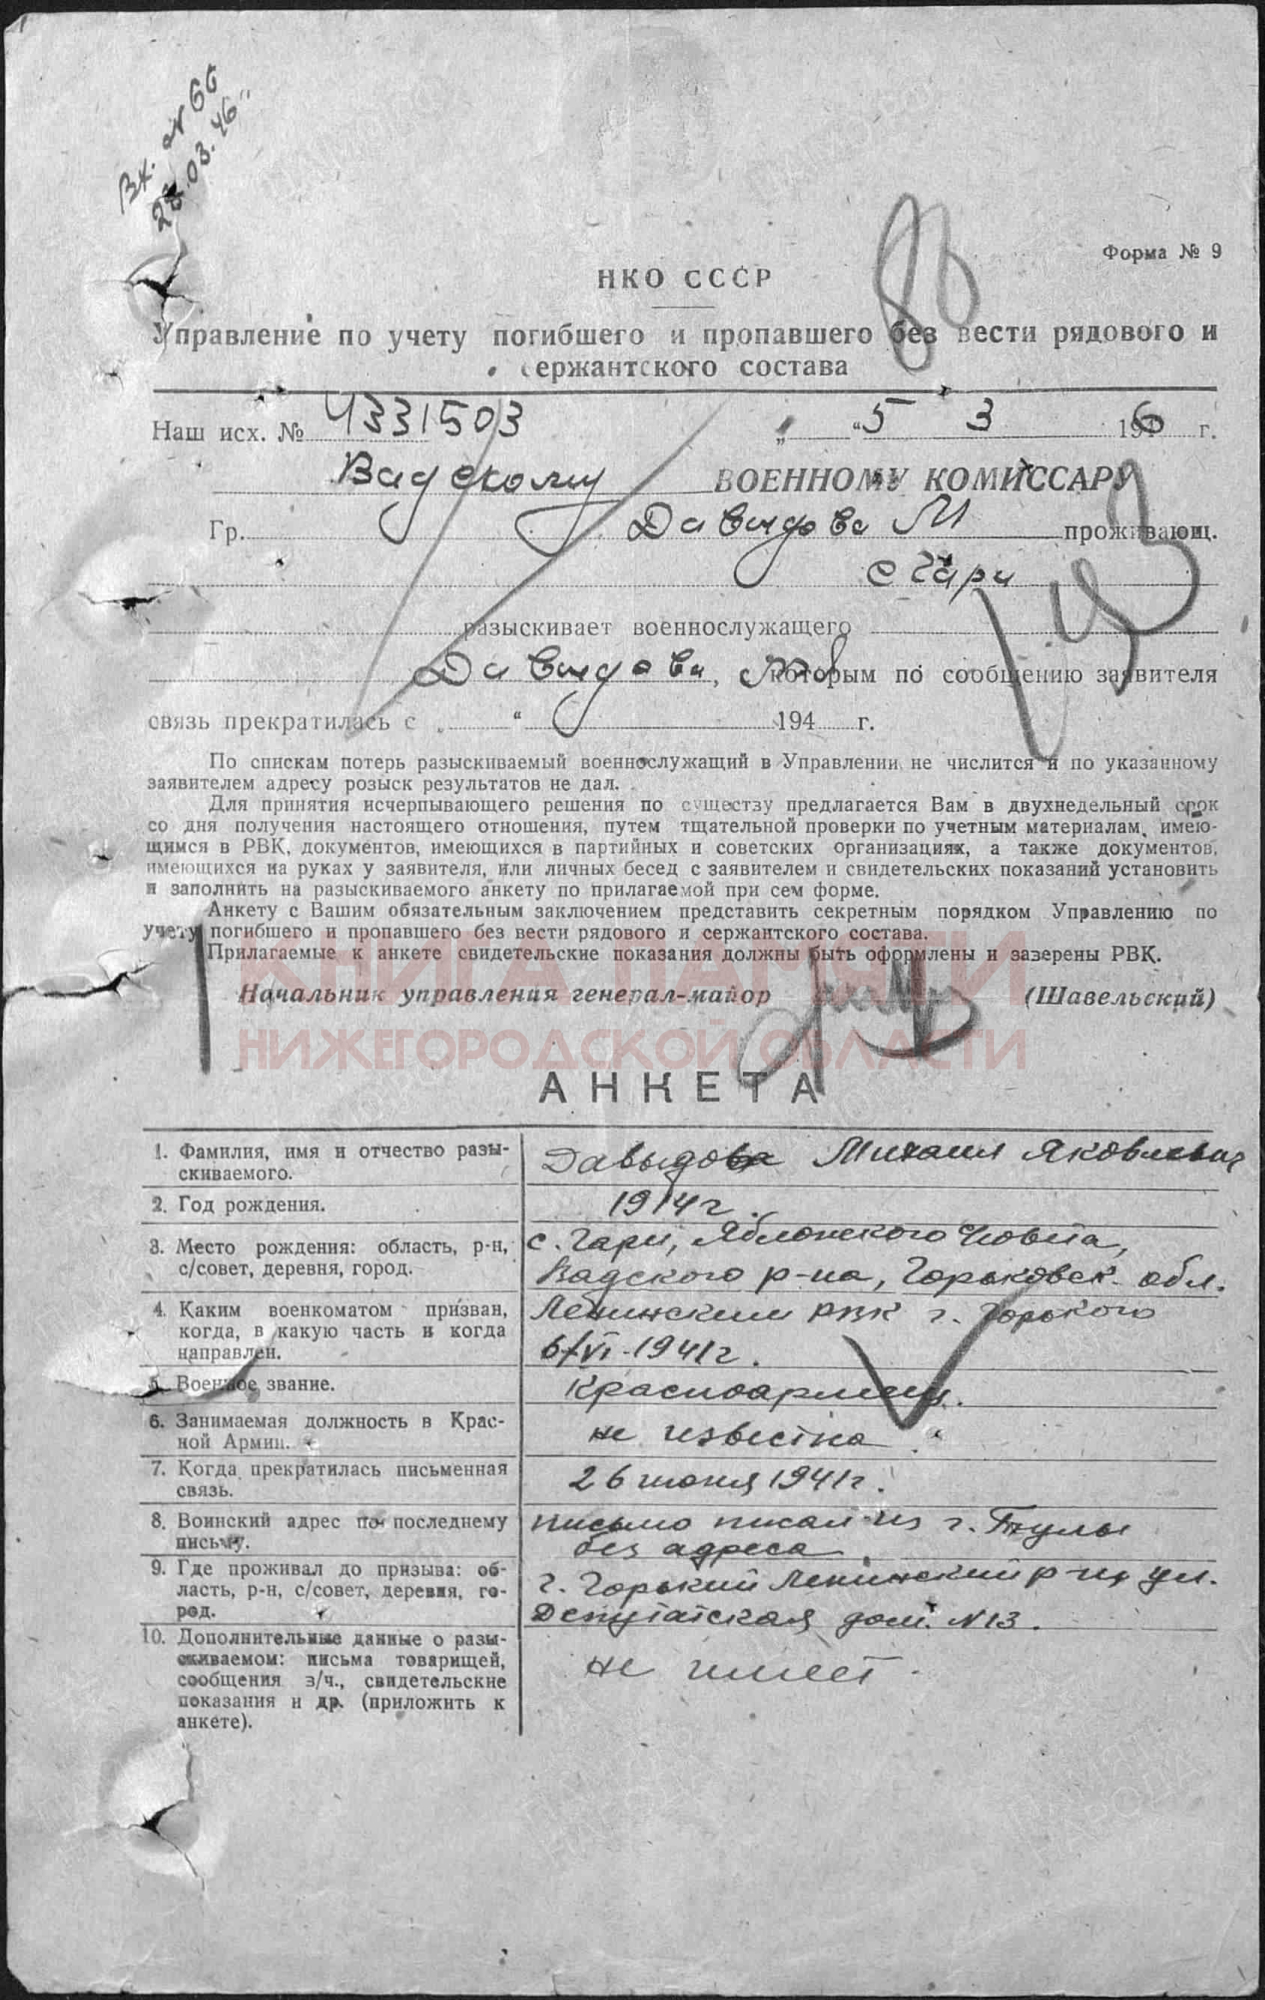 Вх. № 66
28.03.46
Форма № 9
НКО СССР
Управление по учету погибшего и пропавшего без вести рядового и
сержантского состава
Наш исх. № 4331503 „ “ 5 3 1946 г.
Вадскому ВОЕННОМУ КОМИССАРУ
Гр. Давыдова М проживающ.
с Гари
разыскивает военнослужащего
Давыдова, которым по сообщению заявителя
связь прекратилась с „ “ 194 г.
По спискам потерь разыскиваемый военнослужащий в Управлении не числится и по указанному
заявителем адресу розыск результатов не дал.
Для принятия исчерпывающего решения по существу предлагается Вам в двухнедельный срок
со дня получения настоящего отношения, путем тщательной проверки по учетным материалам, имею-
щимся в РВК, документов, имеющихся в партийных и советских организациях, а также документов,
имеющихся на руках у заявителя, или личных бесед с заявителем и свидетельских показаний установить
и заполнить на разыскиваемого анкету по прилагаемой при сем форме.
Анкету с Вашим обязательным заключением представить секретным порядком Управлению по
учету погибшего и пропавшего без вести рядового и сержантского состава.
Прилагаемые к анкете свидетельские показания должны быть оформлены и заверены РВК.
КНИГА ПАМЯТИ
Начальник управления генерал-майор (Шавельский)
НИЖЕГОРОДСКОЙ ОБЛАСТИ
АНКЕТА
1. Фамилия, имя и отчество разы-
скиваемого.
Давыдова Михаил Яковлевич
2. Год рождения.
1914 г.
3. Место рождения: область, р-н,
с/совет, деревня, город.
с. Гари, Яблонского С/совета,
Вадского р-на, Горьковск. обл.
4. Каким военкоматом призван,
когда, в какую часть и когда
направлен.
Ленинским РВК г. Горького
6/VI-1941 г.
5. Военное звание.
Красноармеец.
6. Занимаемая должность в Крас-
ной Армии.
не известна.
7. Когда прекратилась письменная
связь.
26 июня 1941 г.
8. Воинский адрес по последнему
письму.
письмо писал из г. Тулы
без адреса
9. Где проживал до призыва: об-
ласть, р-н, с/совет, деревня, го-
род.
г. Горький Ленинский р-н ул.
Депутатская дом. N 13.
10. Дополнительные данные о разы-
скиваемом: письма товарищей,
сообщения в/ч., свидетельские
показания и др. (приложить к
анкете).
не имеет.